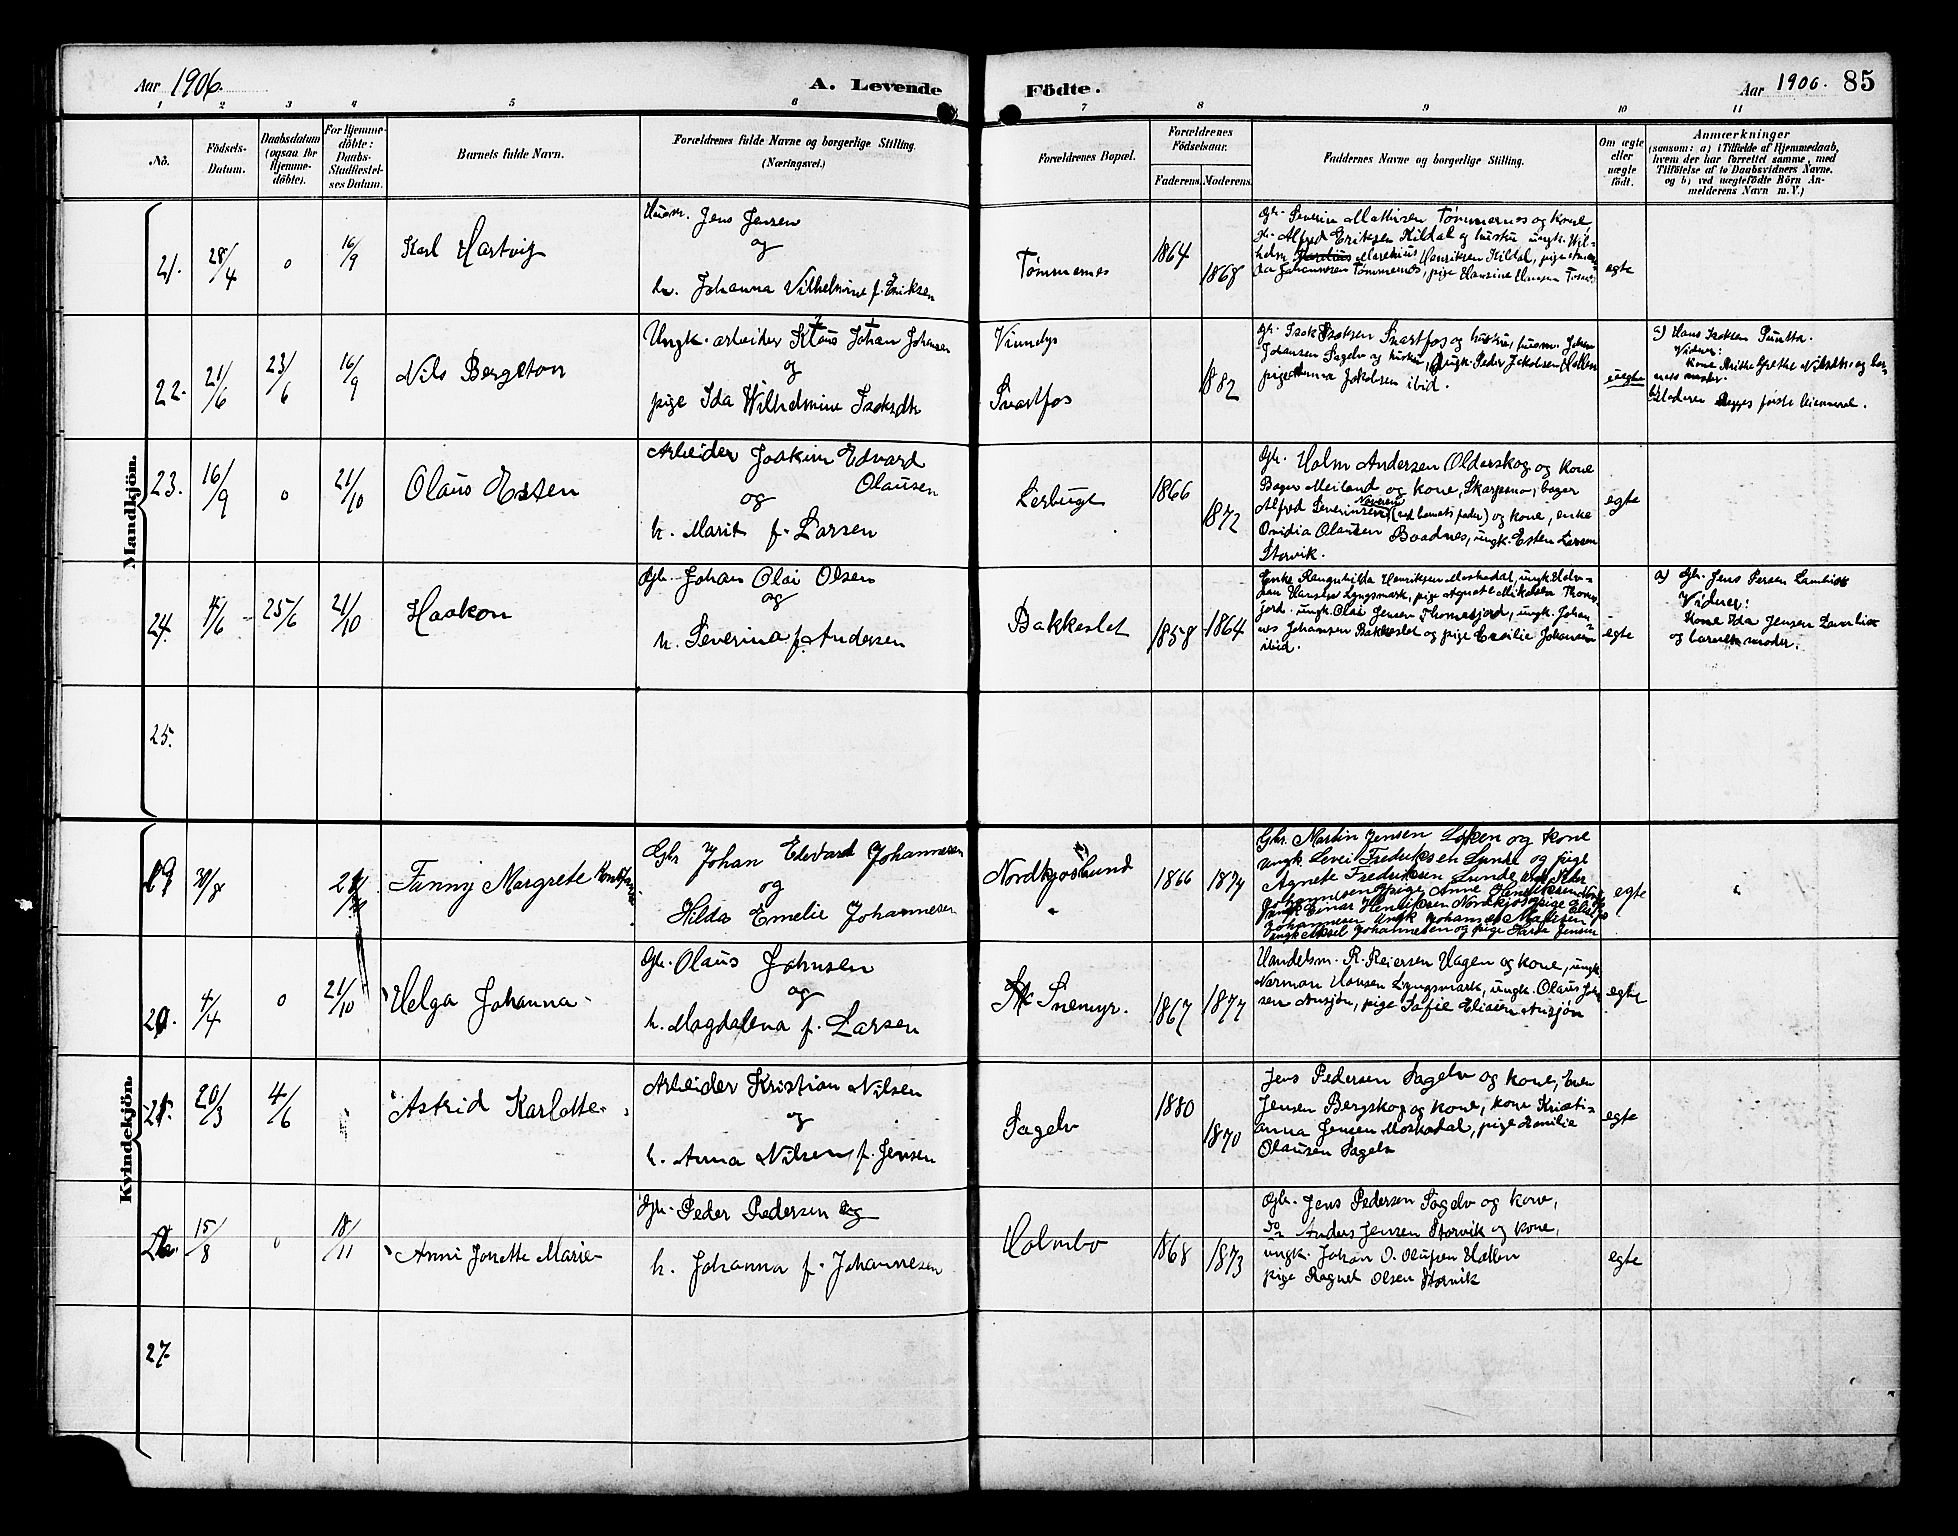 Aar 1906.
A. Levende
Födte.
Aar 1906. 85
1 2 3 4 5 6 7 8 9 10 11
No.
Födsels-
Datum.
Daabsdatum
(ogsaa for
Hjemme-
döbte).
For Hjemme-
döbte:
Daabs-
Stadfæstel-
ses Datum.
Barnets fulde Navn.
Forældrenes fulde Navne og borgerlige Stilling.
(Næringsvei.)
Forældrenes Bopæl.
Forældrenes
Födselsaar.
Faderens. Moderens.
Faddernes Navne og borgerlige Stilling.
Om ægte
eller
uægte
födt.
Anmærkninger
(saasom: a) i Tilfælde af Hjemmedaab,
hvem der har forrettet samme, med
Tilföielse af to Daabsvidners Navne.
og b) ved uægtefödte Börn An-
melderens Navn m. V.)
Mandkjön.
21.
28/4
0
16/9
Karl Hartvig
Huusm. Jens Jensen
og
h. Johanna Vilhelmine f. Eriksen
Tømmernes
1864
1868
Gbr. Severin Mathisen Tømmernes og kone
Gbr. Alfred Eriksen Kildal og hustru ungk. Vil-
helm Marelius Henriksen Kildal, pige
Johannesen Tømmernes, pige Hansine Hansen
egte
22.
21/6
23/6
16/9
Nils Bergeton
Ungk. arbeider Klaus Johan Johansen
og
pige Ida Wilhelmine Isaksdtr
Vinnelys
Svartfos
1882
gbr. Isak Isaksen Svartfos og hustru, huusm. Johan
Johansen Sagelv og hustru, ungk. Peder Jakobsen
pige Anna Jakobsen ibid.
uegte
a) Hans Isaksen Puntta.
Vidner:
Kone Brithe Grethe Nilsdtr. og bar-
nets moder.
b) Moderen begges første leiermaal.
23.
16/9
0
21/10
Olaus Esten
Arbeider Joakim Edvard
Olausen
og
h. Marit f. Larsen
Lerbugt
1866
1872
Gbr. Holm Andersen Olderskog og kone
Bager Meiland og kone, Skarpsno, bager
Alfred Severinsen (ved barnets fader) og kone, enke
Ovidia Olausen Baadnes, ungk. Esten Larsen
Storvik.
egte
24.
25/6
21/10
Haakon
Gbr. Johan Olai Olsen
og
h. Severina f. Andersen
Bakkeslet
1858
1864
Enke Rangnhilda Henriksen Moskodal, ungk. Halv-
dan Hansen Lyngsmark, pige Agnete Mikelsen Thomes-
jord. ungk. Olai Jensen Thomesjord, ungk. Johan-
nes Johansen Bakkeslet og pige Emilie Johansen
ibid.
egte
a) Gbr. Jens Persen
Vidner:
Kone Ida Jensen
og barnets moder.
25.
Kvindekjön.
19
30/8
Fanny Margrete
Gbr Johan Edvard Johannesen
og
Hilda Emelie Johannesen
Nordkjoslund
"
1866
1874
Gbr. Martin Jensen Løken og kone
ungk Levei Fredriksen Lunde og pige
Agnete Fredriksen Lunde
Johannesen og pige Anne Henriksen
ungk Einar Henriksen Nordkjos og pige
Johannesen ungk Johannes Madsen
ungk Aksel Johannesen og pige Jensen
egte
20.
4/4
0
21/10
Helga Johanna
Gbr. Olaus Johnsen
og
h. Magdalena f. Larsen
Snemyr.
1867
1877
Handelsm. R. Reiersen Hagen og kone, ungk
Norman Hansen Lyngsmark, ungk. Olaus Joh-
sen Ansjøn, pige Sofie Eliasen Ansjøn
egte
21.
20/3
4/6
Astrid Karlotte
Arbeider Kristian Nilsen
og
h. Anna Nilsen f. Jensen
Sagelv
1880
1870
Jens Pedersen Sagelv og kone, Even
Jensen Bergskog og kone, kone Kristi-
anna Jensen Moskodal, pige Emilie
Olausen Sagelv
egte
15/8
0
18/11
Anni Jonette Marie
Gbr. Peder Pedersen og
h. Johanna f. Johannesen
Holmbo
1868
1873
Gbr. Jens Pedersen Sagelv og kone,
do Anders Jensen Storvik og kone,
ungk. Johan O. Olufsen Hallen
pige Ragnel Olsen Storvik
egte
27.